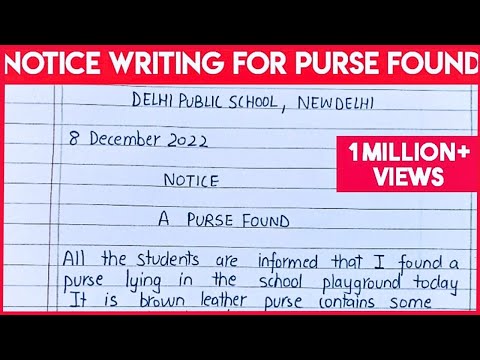 NOTICE WRITING FOR PURSE FOUND
DELHI PUBLIC SCHOOL, NEW DELHI
8 December 2022
1 MILLION+
VIEWS
NOTICE
A PURSE FOUND
All the students are informed that I found a
purse lying in the school playground today
It is brown leather purse contains some